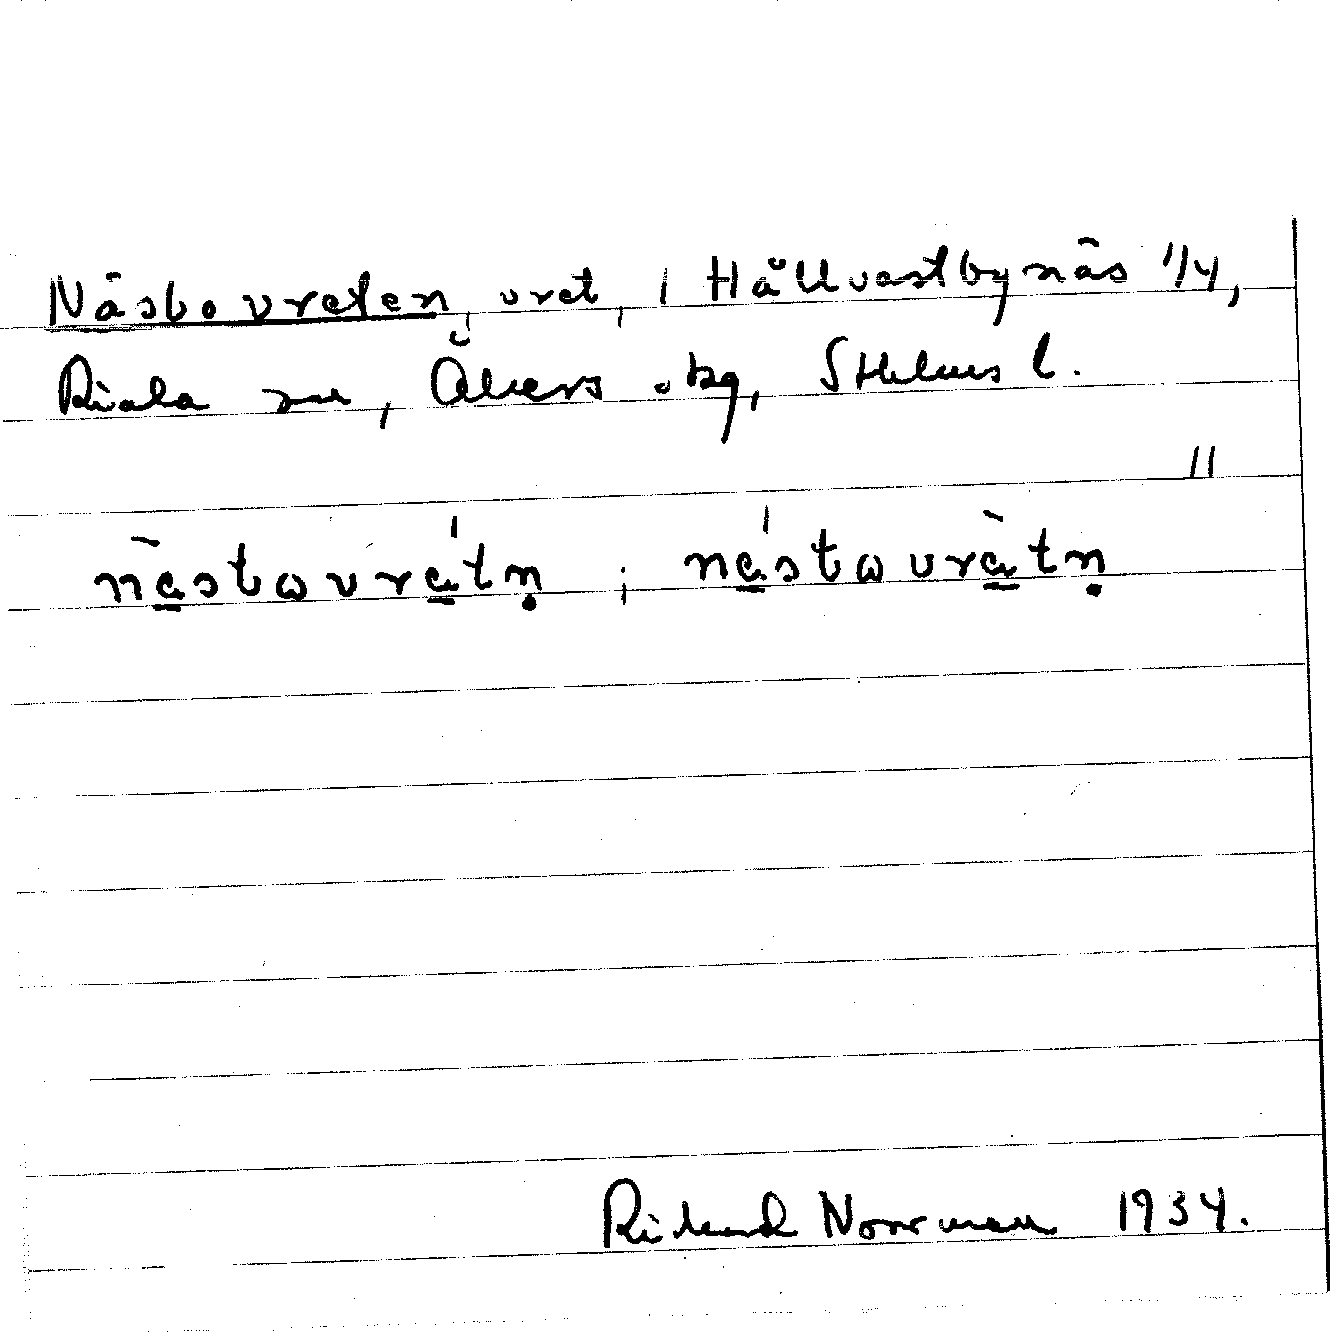 Näsbovreten, vret, i Hållvastbynäs 1/4,
Riala sn, Åkers skg, Sthlms l.
11
näsbωvrätṇ ; näsbωvrätṇ
Rikard Norrman 1934.